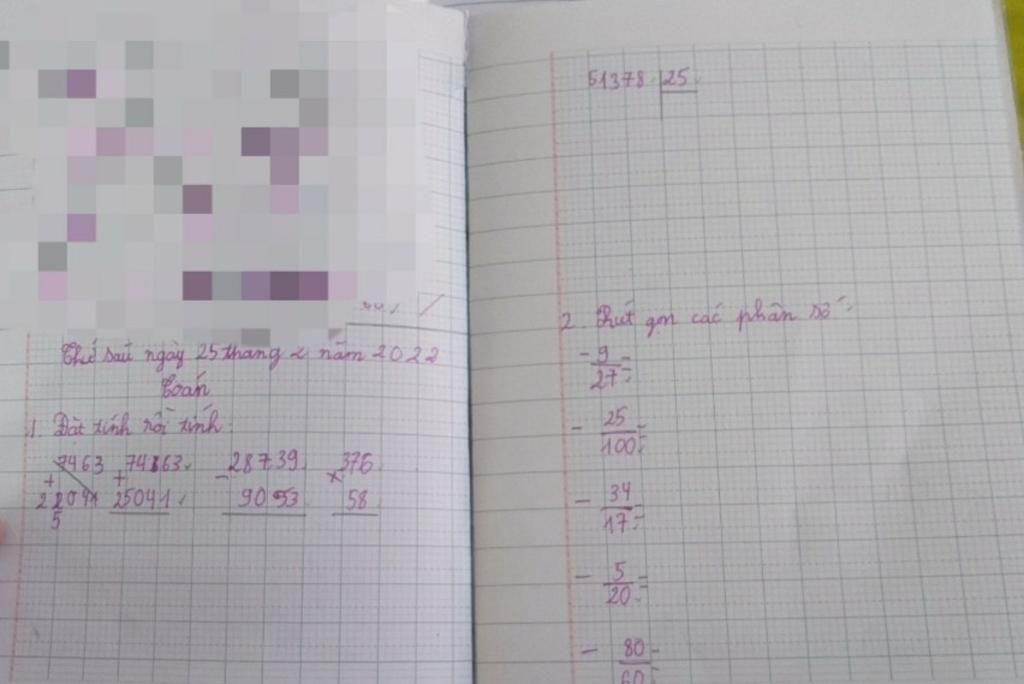 Thứ sáu ngày 25 tháng 2 năm 2022
Toán
1. Đặt tính rồi tính
7463 74163 28739 376
+ + - ×
25041 9053 58
5
51378 25
2. Rút gọn các phân số:
- 9/27 =
- 25/100 =
- 34/17 =
- 5/20 =
- 80/60 =